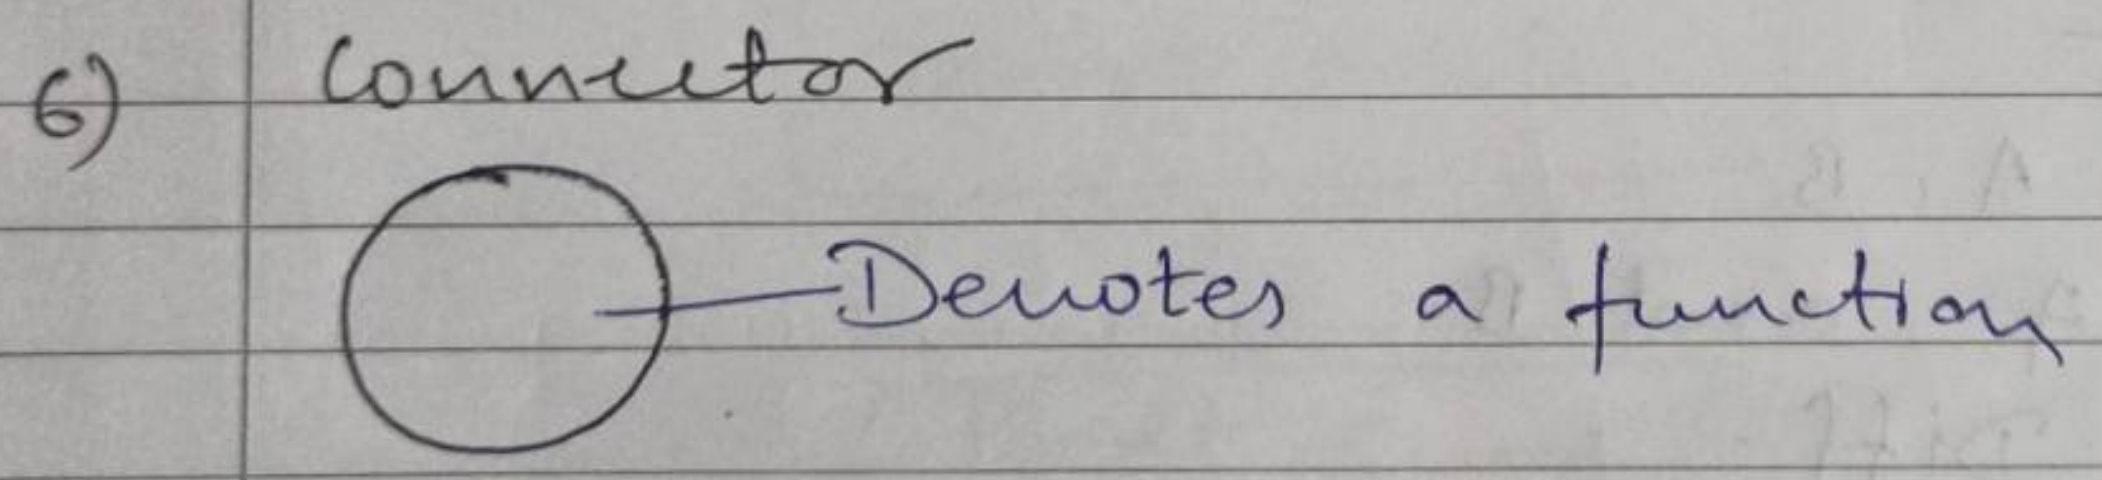 6) Connector
Denotes a function